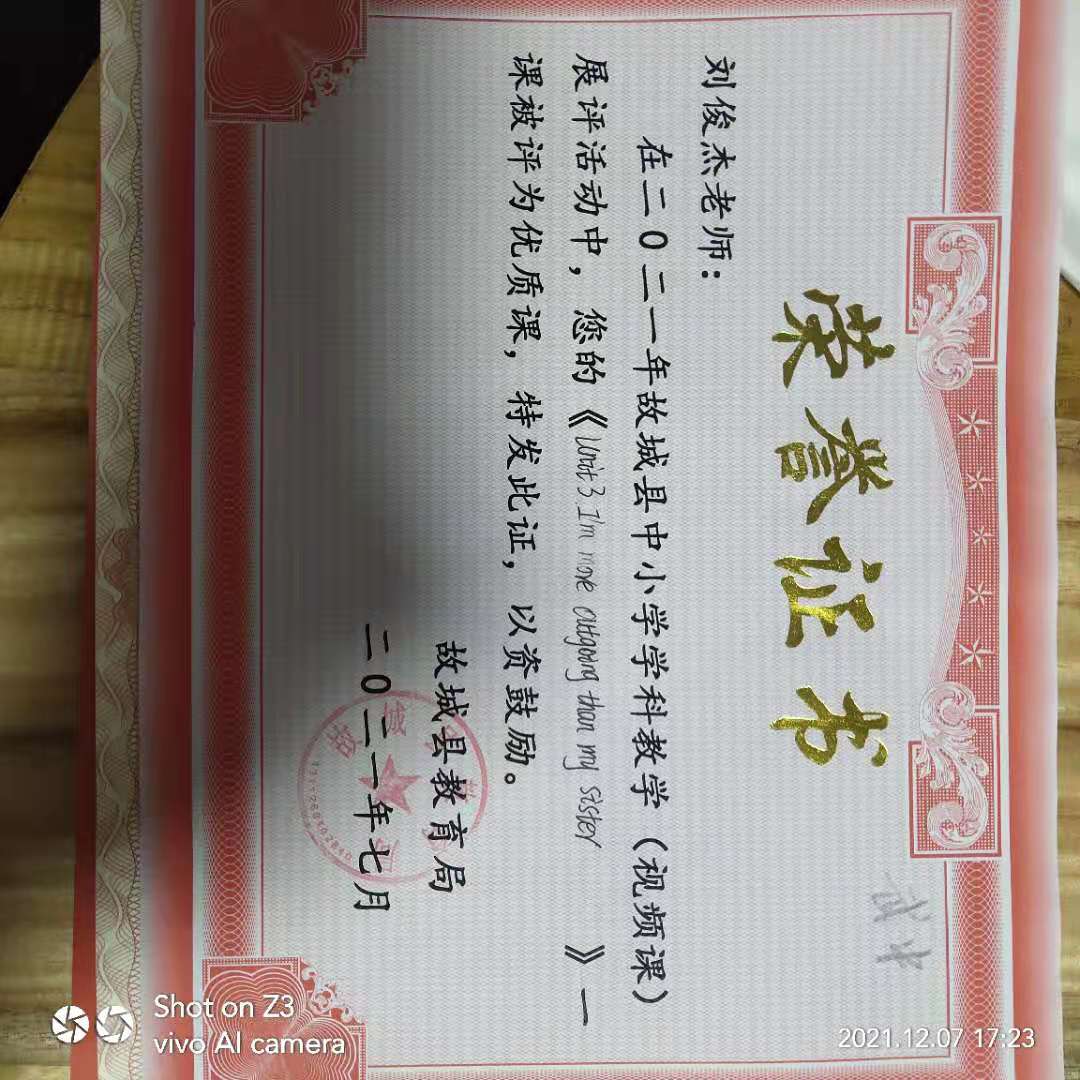 荣誉证书
刘俊杰老师：
在二〇二一年故城县中小学学科教学（视频课）
展评活动中，您的《Unit3 I'm more outgoing than my sister》一
课被评为优质课，特发此证，以资鼓励。
故城县教育局
二〇二一年七月
Shot on Z3
vivo AI camera
2021.12.07 17:23